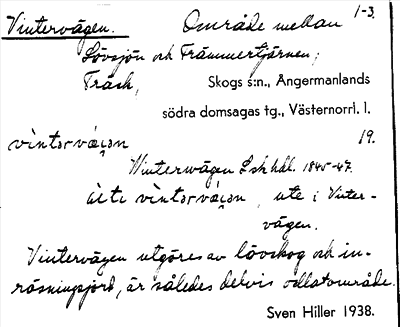 Vintervägen. Område mellan 1-3.
Lövsjön och Främmertjärnen;
Träsk, Skogs s:n., Ångermanlands
södra domsagas tg., Västernorrl. l.
19.
vìntərvæ̀gən
Winterwägen Lskhdl. 1845-47.
ùte vìntərvæ̀gən, ute i Vinter-
vägen.
Vintervägen utgöres av lövskog och in-
rösningsjord, är således delvis odlat område.
Sven Hiller 1938.